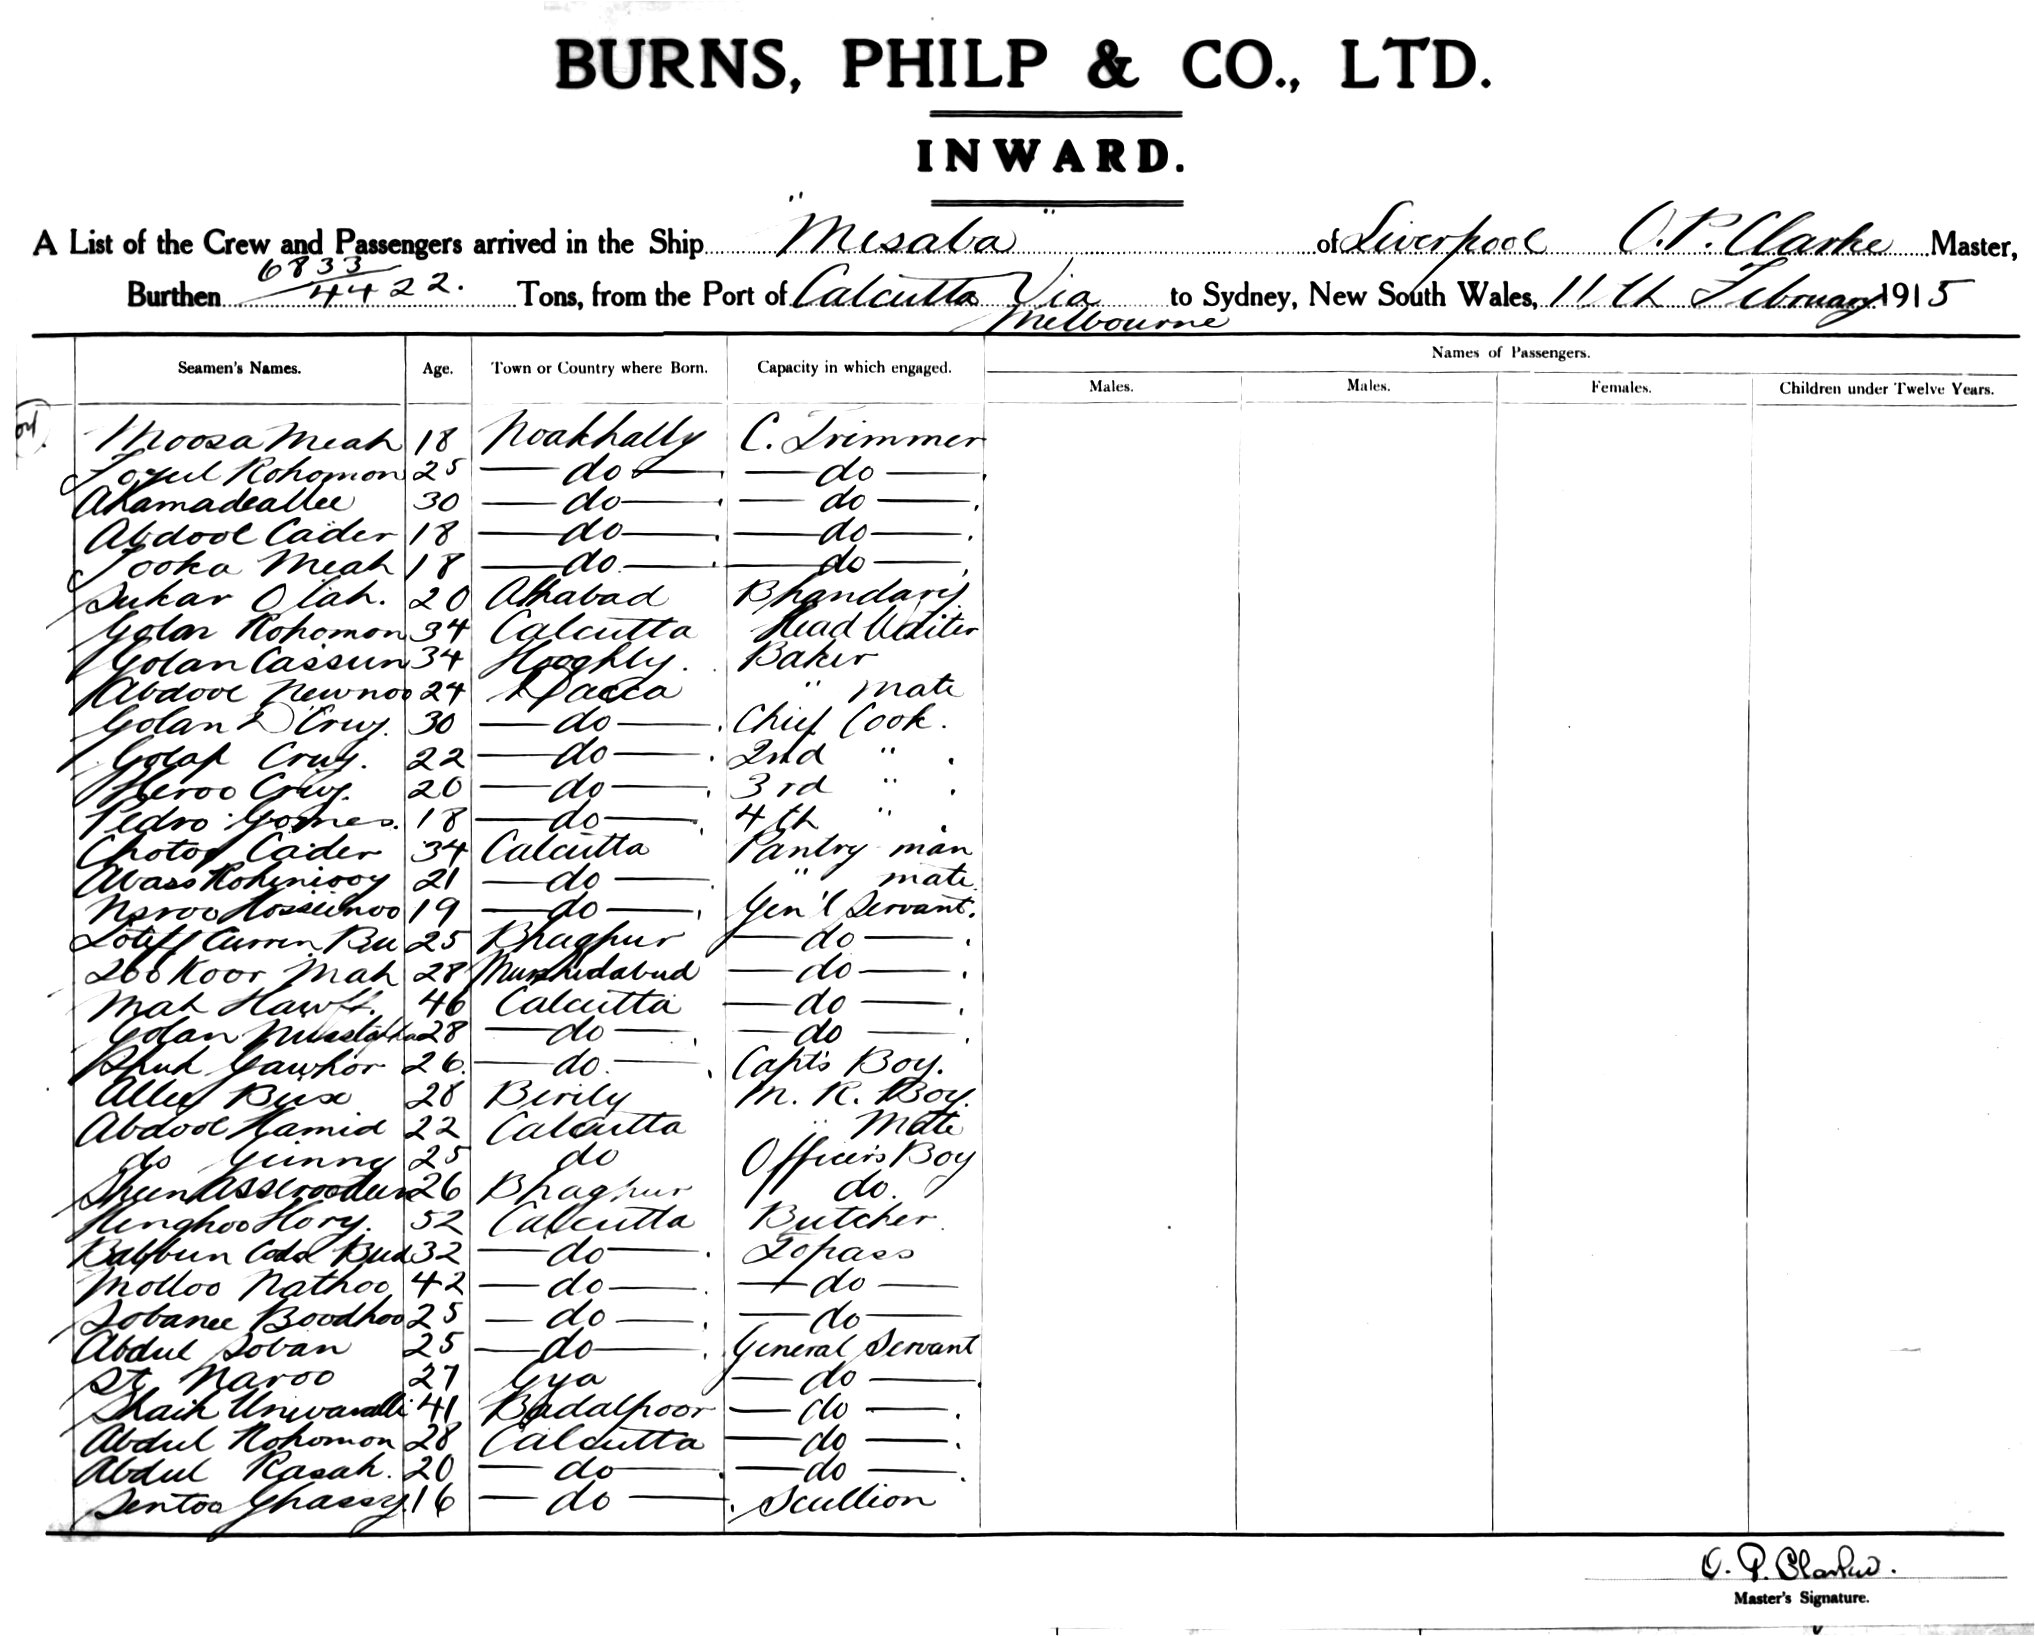 BURNS, PHILP & CO., LTD.
INWARD.
A List of the Crew and Passengers arrived in the Ship "Mesaba" of Liverpool O. P. Clarke Master,
Burthen 6833/4422. Tons, from the Port of Calcutta Via Melbourne to Sydney, New South Wales, 11th February 1915
Names of Passengers.
Seamen's Names. Age. Town or Country where Born. Capacity in which engaged. Males. Males. Females. Children under Twelve Years.
Moosa Meah 18 Noakhally C. Trimmer
Rohomon 25 — do — — do —
Ahamadeallee 30 — do — — do —
Abdool Cader 18 — do — — do —
Tooka Meah 18 — do — — do —
Sukar Olah. 20 Bhandary
Golan Rohomon 34 Calcutta Head Waiter
Golan Cassun 34 Hooghly. Baker
Abdool Newnoo 24 Dacca " mate
Golan D'Cruy. 30 — do — Chief Cook.
Golap Cruy. 22 — do — 2nd "
Heroo Cruy. 20 — do — 3rd "
Pedro Gomes. 18 — do — 4th "
Chotoo Cader 34 Calcutta Pantry man
Abass 21 — do — " mate
Hosseinoo 19 — do — Gen'l Servant.
Bu 25 Bhagpur — do —
Koor Mah 28 Murshidabud — do —
Mah 46 Calcutta — do —
Golan 28 — do — — do —
Gawhor 26. — do. — Capt's Boy.
Alley Bux 28 Birily M. R. Boy.
Abdool Hamid 22 Calcutta " Mate
do Gunny 25 do Officer's Boy
26 Bhagpur do.
Hory. 52 Calcutta Butcher.
32 — do — Topass
Molloo Nathoo 42 — do — — do —
Sobanee Boodhoo 25 — do — — do —
Abdul Soban 25 — do — General Servant
St Naroo 27 Gya — do —
Shaik 41 Badalpoor — do —
Abdul Rohomon 28 Calcutta — do —
Abdul Rasah. 20 — do — — do —
Sentoo Ghassy. 16 — do — Scullion
O. P. Clarke.
Master's Signature.